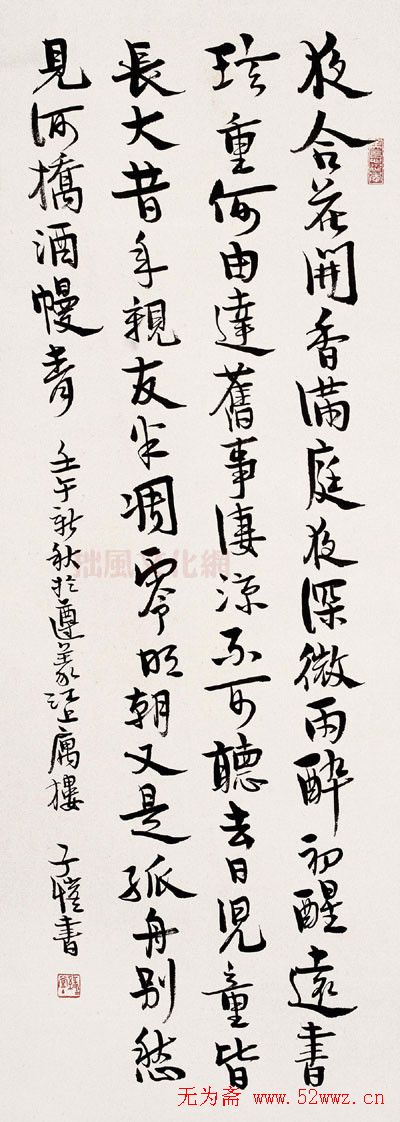 夜合花開香滿庭夜深微雨醉初醒遠書
珍重何由達舊事凄涼不可聽去日兒童皆
長大昔年親友半凋零明朝又是孤舟別愁
見河橋酒幔青 壬午新秋於遵義江上寓樓 子愷書
拙風文化網
无为斋 www.52wwz.cn